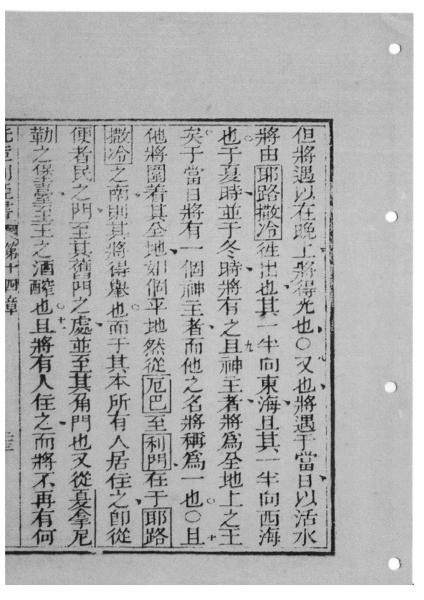 但將遇以在晚上將得光也○又也將遇于當日以活水
將由耶路撒冷徃出也其一半向東海且其一半向西海
也于夏時並于冬時將有之且神主者將為全地上之王
矣于當日將有一個神主者而他之名將稱為一也○且
他將圍着其全地如個平地然從厄巴至利門在于耶路
撒冷之南則其將得舉也而于其本所有人居住之即從
便者民之門至其舊門之處並至其角門也又從夏拿尼
勒之堡臺至王之酒醡也且將有人住之而將不再有何
第十四章